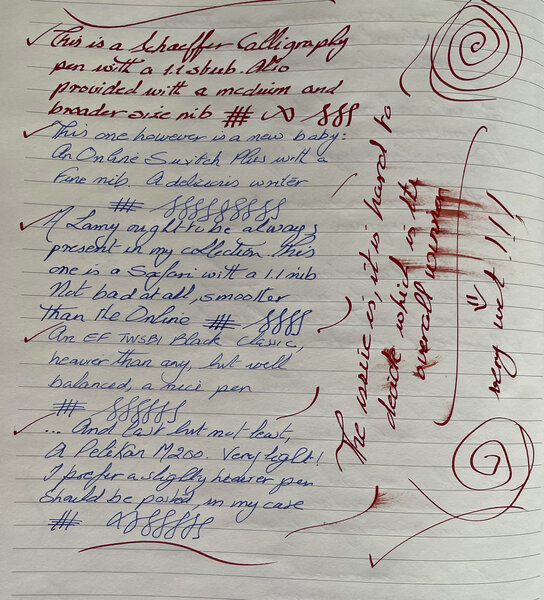 This is a Schaeffer Calligraphy
pen with a 1.1 stub. Also
provided with a medium and
broader size nib
This one however is a new baby:
An Online Switch Plus with a
Fine nib. A delicious writer
A Lamy ought to be always
present in my collection. This
one is a Safari with a 1.1 nib
Not bad at all, smoother
than the Online
An EF TWSBI Black Classic,
heavier than any, but well
balanced, a nice pen
... And last but not least,
A Pelikan M200. Very light!
I prefer a slightly heavier pen
Should be posted, in my case
The issue is, it is hard to
decide which is the
overall winner
very wet!!!